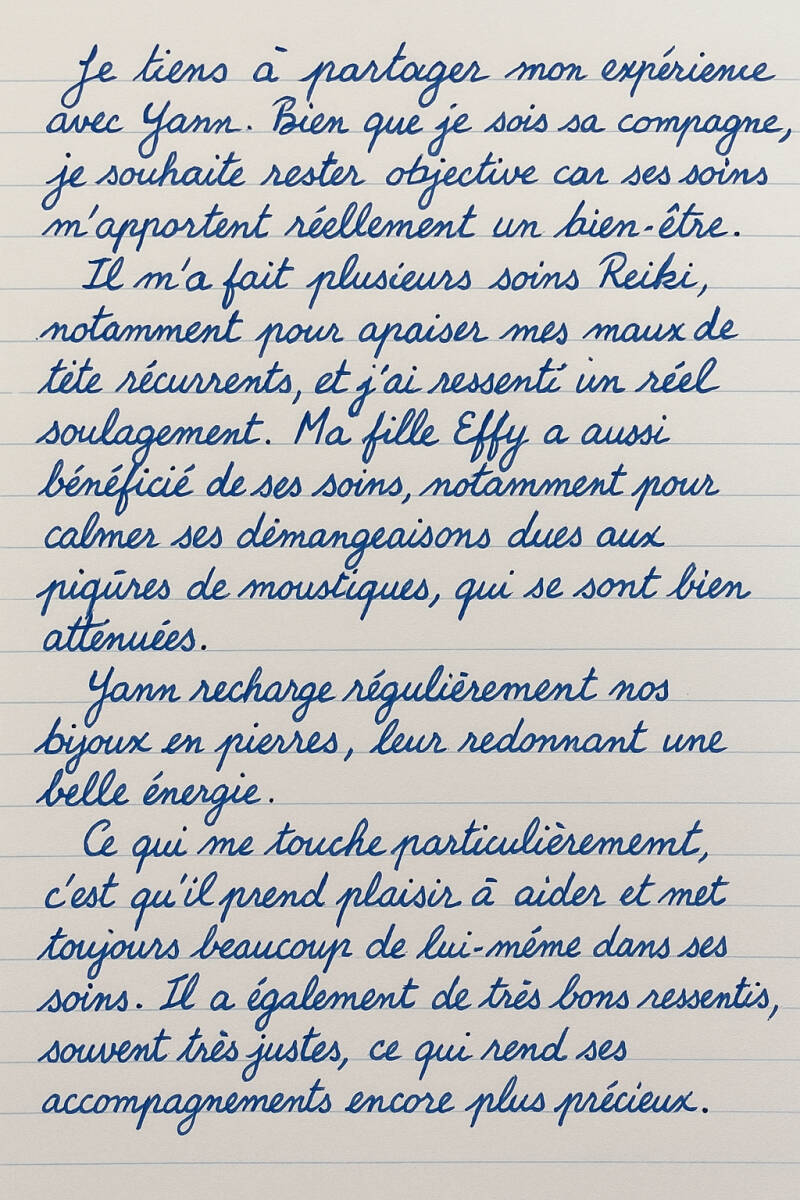 Je tiens à partager mon expérience
avec Yann. Bien que je sois sa compagne,
je souhaite rester objective car ses soins
m'apportent réellement un bien-être.
Il m'a fait plusieurs soins Reiki,
notamment pour apaiser mes maux de
tête récurrents, et j'ai ressenti un réel
soulagement. Ma fille Effy a aussi
bénéficié de ses soins, notamment pour
calmer ses démangeaisons dues aux
piqûres de moustiques, qui se sont bien
atténuées.
Yann recharge régulièrement nos
bijoux en pierres, leur redonnant une
belle énergie.
Ce qui me touche particulièrememt,
c'est qu'il prend plaisir à aider et met
toujours beaucoup de lui-même dans ses
soins. Il a également de très bons ressentis,
souvent très justes, ce qui rend ses
accompagnements encore plus précieux.